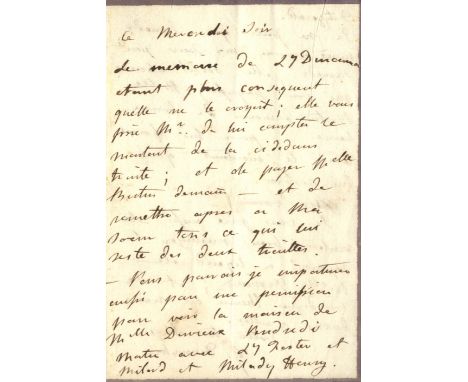 ce Mercredi Soir
de memoire de Ly
etant plus consequent
quelle ne le croyoit; elle vous
prie Mr. de lui compter le
montant de la cidedans
traite; et de payer Melle
demain — et de
remettre apres a Ma
Soeur tous ce qui lui
reste des deux traittes.
— Vous pourois je importuner
aussi pour une permission
pour voir la maison de
Melle Vendredi
Matin avec Ly et
Milord et Milady Henry.